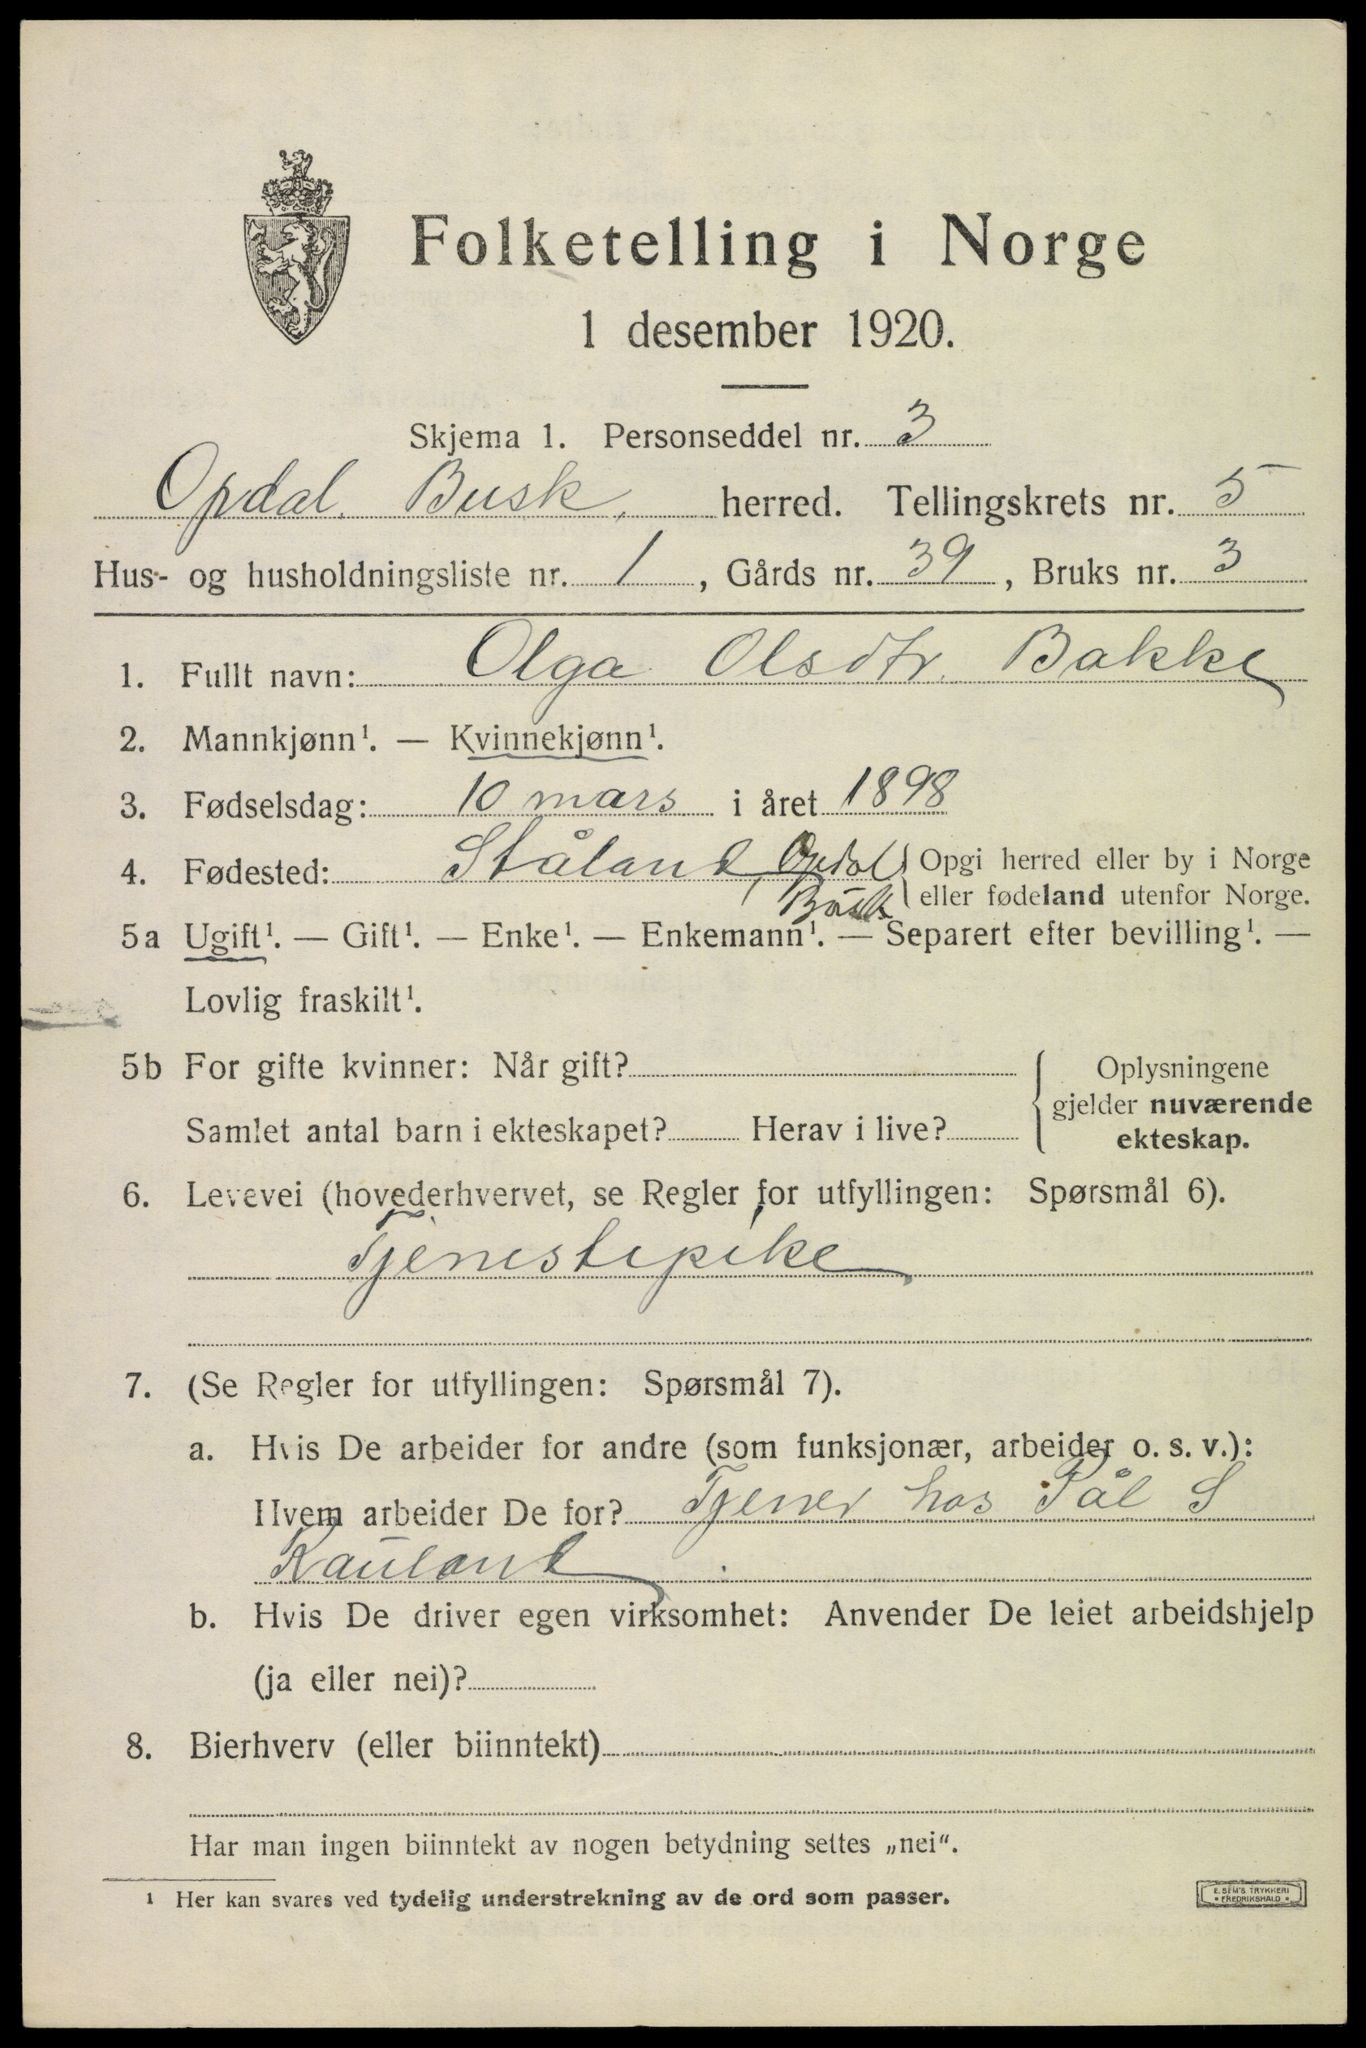 Folketelling i Norge
1 desember 1920.
Skjema 1. Personseddel nr. 3
Opdal. Busk. herred. Tellingskrets nr. 5
Hus- og husholdningsliste nr. 1, Gårds nr. 39, Bruks nr. 3
1. Fullt navn: Olga Olsdtr. Bakke
2. Mannkjønn¹. — Kvinnekjønn¹.
3. Fødselsdag: 10 mars i året 1898
4. Fødested: Ståland, Opdal Busk { Opgi herred eller by i Norge
eller fødeland utenfor Norge.
5a Ugift¹. — Gift¹. — Enke¹. — Enkemann¹. — Separert efter bevilling¹. —
Lovlig fraskilt¹.
5b For gifte kvinner: Når gift?
Samlet antal barn i ekteskapet? Herav i live?
Oplysningene
gjelder nuværende
ekteskap.
6. Levevei (hovederhvervet, se Regler for utfyllingen: Spørsmål 6).
Tjenestepike
7. (Se Regler for utfyllingen: Spørsmål 7).
a. Hvis De arbeider for andre (som funksjonær, arbeider o. s. v.):
Hvem arbeider De for? Tjener hos Pål S
Kauland
b. Hvis De driver egen virksomhet: Anvender De leiet arbeidshjelp
(ja eller nei)?
8. Bierhverv (eller biinntekt)
Har man ingen biinntekt av nogen betydning settes „nei“.
¹ Her kan svares ved tydelig understrekning av de ord som passer.
E. SEM'S TRYKKERI
• FREDRIKSHALD •